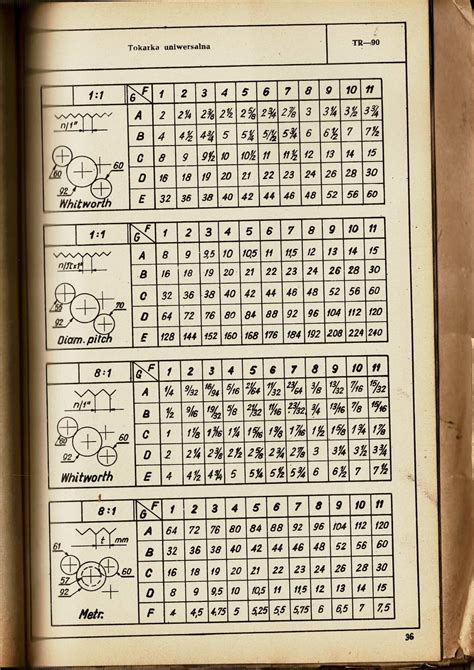 Tokarka uniwersalna
TR—90
1:1 G F 1 2 3 4 5 6 7 8 9 10 11
n/1" A 2 2¼ 2⅜ 2½ 2⅝ 2¾ 2⅞ 3 3¼ 3½ 3¾
B 4 4½ 4¾ 5 5¼ 5½ 5¾ 6 6½ 7 7½
60 C 8 9 9½ 10 10½ 11 11½ 12 13 14 15
60 92 D 16 18 19 20 21 22 23 24 26 28 30
Whitworth E 32 36 38 40 42 44 46 48 52 56 60
1:1 G F 1 2 3 4 5 6 7 8 9 10 11
A 8 9 9,5 10 10,5 11 11,5 12 13 14 15
n/π×1" B 16 18 19 20 21 22 23 24 26 28 30
55 70 C 32 36 38 40 42 44 46 48 52 56 60
92 D 64 72 76 80 84 88 92 96 104 112 120
Diam. pitch E 128 144 152 160 168 176 184 192 208 224 240
8:1 G F 1 2 3 4 5 6 7 8 9 10 11
A ¼ 9/32 5/16 21/64 11/32 23/64 3/8 13/32 7/16 15/32
n/1" B ½ 9/16 19/32 5/8 21/32 11/32 23/32 3/4 13/16 7/8 15/16
60 60 C 1 1⅛ 1 3/16 1¼ 1 5/16 1⅜ 1 7/16 1½ 1⅝ 1¾ 1⅞
92 D 2 2¼ 2⅜ 2½ 2⅝ 2¾ 2⅞ 3 3¼ 3½ 3¾
Whitworth E 4 4½ 4¾ 5 5¼ 5½ 5¾ 6 6½ 7 7½
8:1 G F 1 2 3 4 5 6 7 8 9 10 11
A 64 72 76 80 84 88 92 96 104 112 120
t mm B 32 36 38 40 42 44 46 48 52 56 60
61 60 C 16 18 19 20 21 22 23 24 26 28 30
57 92 D 8 9 9,5 10 10,5 11 11,5 12 13 14 15
Metr. F 4 4,5 4,75 5 5,25 5,5 5,75 6 6,5 7 7,5
36